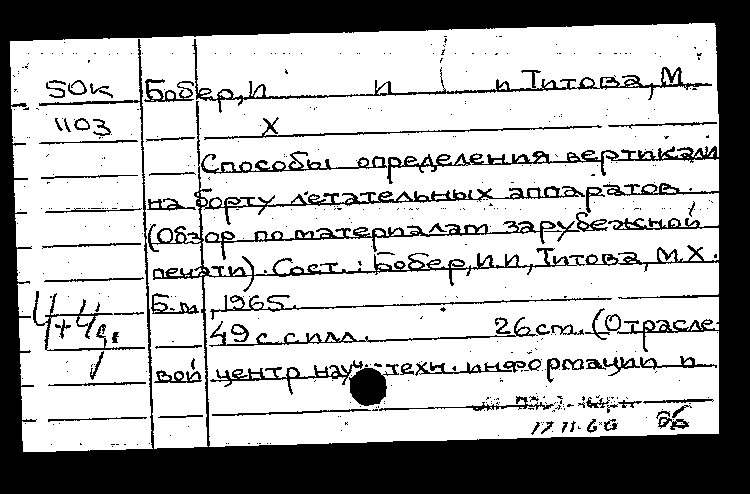 50к Бобер, И П и Титова, М.
1103 Х
Способы определения вертикали
на борту летательных аппаратов.
(Обзор по материалам зарубежной
печати). Сост.: Бобер, И.П., Титова, М.Х.
Б.м., 1965.
4+4д. 49 с с илл. 26 cm. (Отрасле-
вой центр науч-техн. информации и
17.11.66